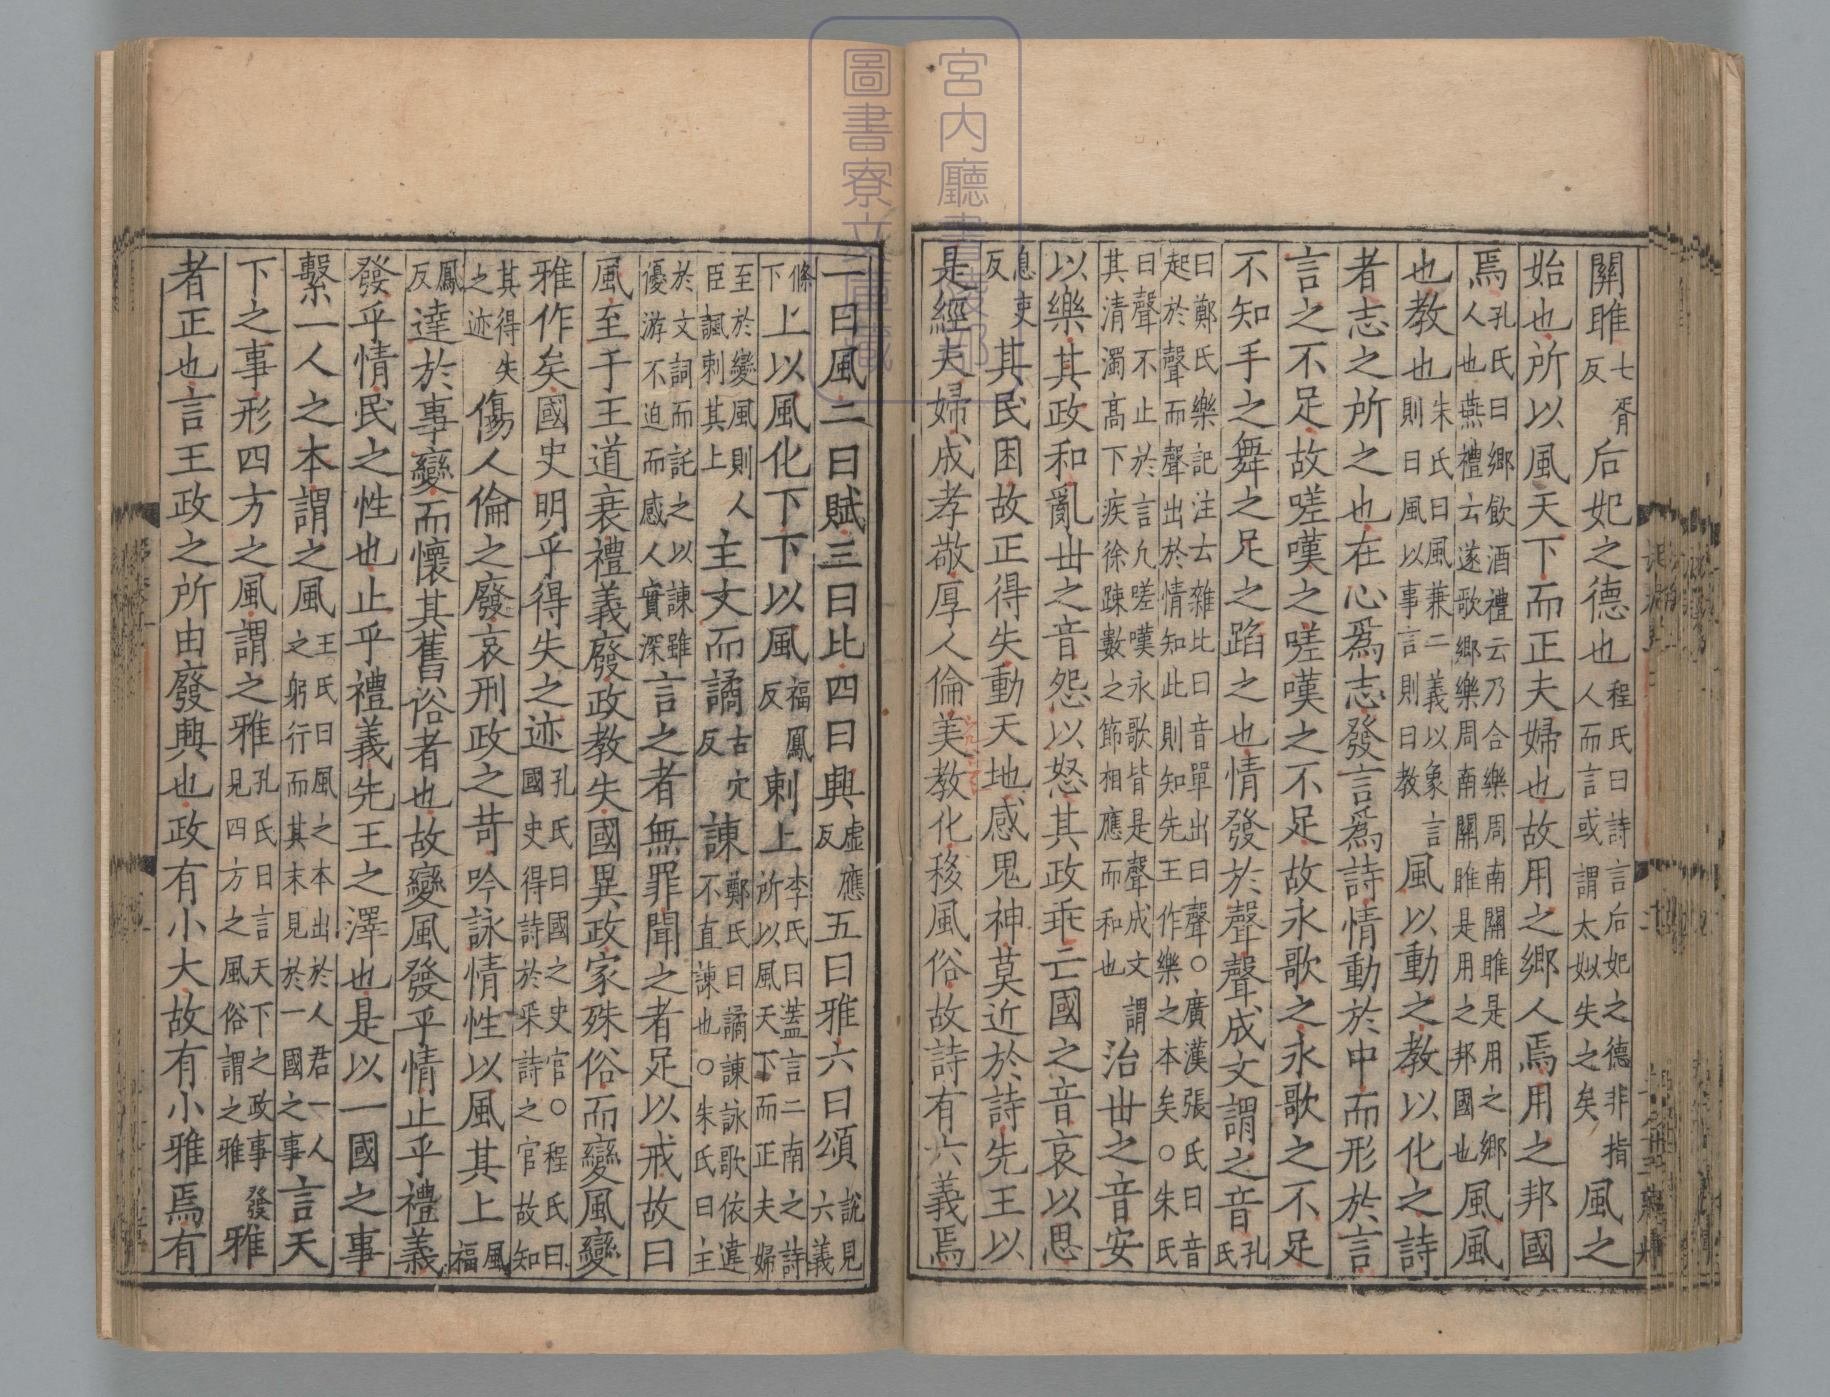 關雎七胥反后妃之德也程氏曰詩言后妃之德非指人而言或謂太姒失之矣風之
始也所以風天下而正夫婦也故用之鄉人焉用之邦國
焉孔氏曰鄉飲酒禮云乃合樂周南關雎是用之鄉人也燕禮云遂歌鄉樂周南關雎是用之邦國也風風
也教也朱氏曰風兼二義以象言則曰風以事言則曰教風以動之教以化之詩
者志之所之也在心爲志發言爲詩情動於中而形於言
言之不足故嗟嘆之嗟嘆之不足故永歌之永歌之不足
不知手之舞之足之蹈之也情發於聲聲成文謂之音孔氏
曰鄭氏樂記注云雜比曰音單出曰聲○廣漢張氏曰音起於聲而聲出於情知此則知先王作樂之本矣○朱氏
曰聲不止於言凡嗟嘆永歌皆是聲成文謂其清濁高下疾徐疎數之節相應而和也治丗之音安
以樂其政和亂丗之音怨以怒其政乖亡國之音哀以思
息吏反其民困故正得失動天地感鬼神莫近於詩先王以
是經夫婦成孝敬厚人倫美教化移風俗故詩有六義焉
一曰風二曰賦三曰比四曰興虛應反五曰雅六曰頌說見六義
條下上以風化下下以風福鳳反刺上李氏曰蓋言二南之詩所以風天下而正夫婦
至於變風則人臣諷刺其上主文而譎古穴反諫鄭氏曰譎諫詠歌依違不直諫也○朱氏曰主
於文詞而託之以諫雖優游不迫而感人實深言之者無罪聞之者足以戒故曰
風至于王道衰禮義廢政教失國異政家殊俗而變風變
雅作矣國史明乎得失之迹孔氏曰國之史官○程氏曰國史得詩於采詩之官故知
其得失之迹傷人倫之廢哀刑政之苛吟詠情性以風其上風福
鳳反達於事變而懷其舊俗者也故變風發乎情止乎禮義
發乎情民之性也止乎禮義先王之澤也是以一國之事
繫一人之本謂之風王氏曰風之本出於人君一人之躬行而其末見於一國之事言天
下之事形四方之風謂之雅孔氏曰言天下之政事發見四方之風俗謂之雅雅
者正也言王政之所由廢興也政有小大故有小雅焉有
宮内廳書陵部
圖書寮文庫藏